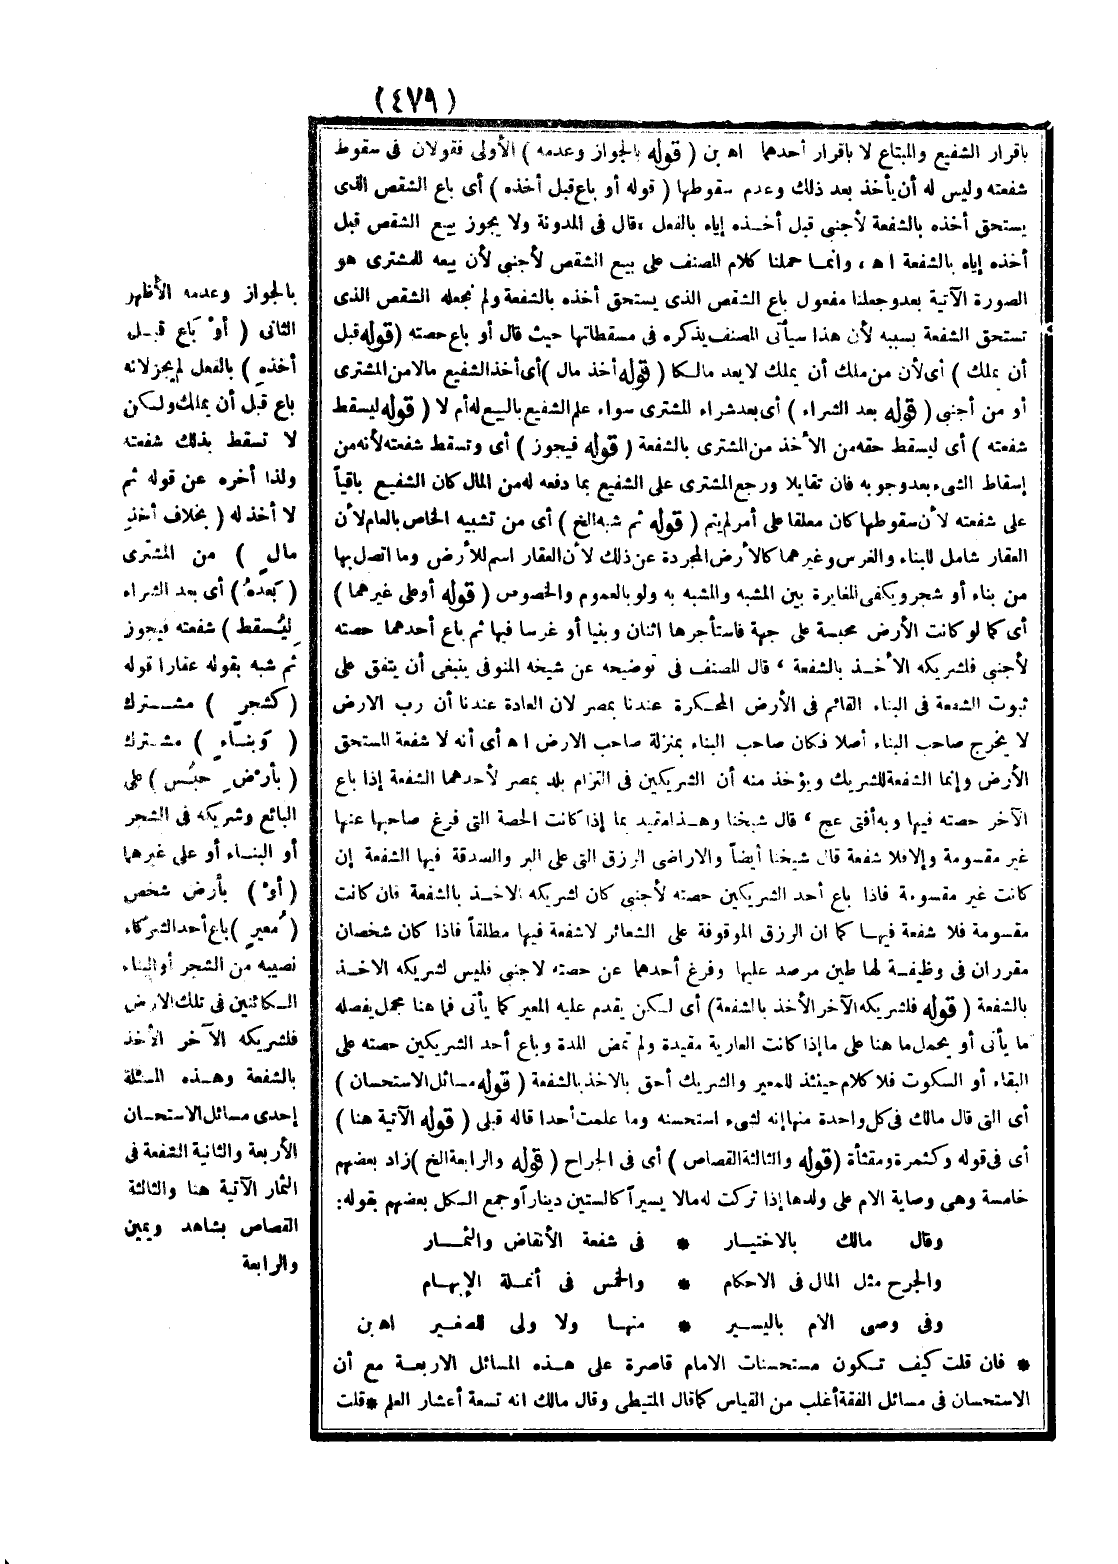 (٤٧٩)
باقرار الشفيع والمبتاع لا باقرار أحدهما اه بن ( قوله بالجواز وعدمه ) الأولى فقولان فى سقوط
شفعته وليس له أن يأخذ بعد ذلك وعدم سقوطها ( قوله أو باع قبل أخذه ) أى باع الشقص الذى
يستحق أخذه بالشفعة لأجنبى قبل أخذه إياه بالفعل ، قال فى المدونة ولا يجوز بيع الشقص قبل
أخذه إياه بالشفعة ا ه ، وانما حملنا كلام المصنف على بيع الشقص لأجنبى لأن بيعه للمشترى هو
الصورة الآتية بعد وجعلنا مفعول باع الشقص الذى يستحق أخذه بالشفعة ولم نجعله الشقص الذى
تستحق الشفعة بسببه لأن هذا سيأتى المصنف يذكره فى مسقطاتها حيث قال أو باع حصته ( قوله قبل
أن يملك ) أى لأن من ملك أن يملك لا يعد مالكا ( قوله أخذ مال ) أى أخذ الشفيع مالا من المشترى
أو من أجنبى ( قوله بعد الشراء ) أى بعد شراء المشترى سواء علم الشفيع بالبيع له أم لا ( قوله ليسقط
شفعته ) أى ليسقط حقه من الأخذ من المشترى بالشفعة ( قوله فيجوز ) أى وتسقط شفعته لأنه من
إسقاط الشىء بعد وجوبه فان تقايلا ورجع المشترى على الشفيع بما دفعه له من المال كان الشفيع باقياً
على شفعته لأن سقوطها كان معلقا على أمر لم يتم ( قوله ثم شبه الخ ) أى من تشبيه الخاص بالعام لأن
العقار شامل للبناء والغرس وغيرهما كالأرض المجردة عن ذلك لأن العقار اسم للأرض وما اتصل بها
من بناء أو شجر ويكفى المغايرة بين المشبه والمشبه به ولو بالعموم والخصوص ( قوله أو على غيرهما )
أى كما لو كانت الأرض محبسة على جهة فاستأجرها اثنان وبنيا أو غرسا فيها ثم باع أحدهما حصته
لأجنبى فلشريكه الأخذ بالشفعة ، قال المصنف فى توضيحه عن شيخه المنوفى ينبغى أن يتفق على
ثبوت الشفعة فى البناء القائم فى الأرض المحكرة عندنا بمصر لان العادة عندنا أن رب الارض
لا يخرج صاحب البناء أصلا فكان صاحب البناء بمنزلة صاحب الارض ا ه أى أنه لا شفعة لمستحق
الأرض وإنما الشفعة للشريك ويؤخذ منه أن الشريكين فى التزام بلد بمصر لأحدهما الشفعة إذا باع
الآخر حصته فيها وبه أفتى عج ، قال شيخنا وهذا مقيد بما إذا كانت الحصة التى فرغ صاحبها عنها
غير مقسومة وإلا فلا شفعة قال شيخنا أيضاً والاراضى الرزق التى على البر والصدقة فيها الشفعة إن
كانت غير مقسومة فاذا باع أحد الشريكين حصته لأجنبى كان لشريكه الاخذ بالشفعة فان كانت
مقسومة فلا شفعة فيها كما ان الرزق الموقوفة على الشعائر لا شفعة فيها مطلقاً فاذا كان شخصان
مقرران فى وظيفة لها طين مرصد عليها وفرغ أحدهما عن حصته لاجنبى فليس لشريكه الاخذ
بالشفعة ( قوله فلشريكه الآخر الأخذ بالشفعة) أى لكن يقدم عليه المعير كما يأتى فما هنا مجمل يفصله
ما يأتى أو يحمل ما هنا على ما إذا كانت العارية مقيدة ولم تمض المدة وباع أحد الشريكين حصته على
البقاء أو السكوت فلا كلام حينئذ للمعير والشريك أحق بالاخذ بالشفعة ( قوله مسائل الاستحسان )
أى التى قال مالك فى كل واحدة منها إنه لشىء استحسنه وما علمت أحدا قاله قبلى ( قوله الآتية هنا )
أى فى قوله وكثمرة ومقثأة ( قوله والثالثة القصاص ) أى فى الجراح ( قوله والرابعة الخ ) زاد بعضهم
خامسة وهى وصاية الام على ولدها إذا تركت له مالا يسيراً كالستين ديناراً وجمع الكل بعضهم بقوله:
وقال مالك بالاختيار * فى شفعة الأنقاض والثمار
والجرح مثل المال فى الاحكام * والخمس فى أنملة الإبهام
وفى وصى الام باليسير * منها ولا ولى للصغير اه بن
* فان قلت كيف تكون مستحسنات الامام قاصرة على هذه المسائل الاربعة مع أن
الاستحسان فى مسائل الفقه أغلب من القياس كما قال المتيطى وقال مالك انه تسعة أعشار العلم * قلت
بالجواز وعدمه الأظهر
الثانى ( أوْ بَاع قبل
أخذهِ ) بالفعل لم يجز لانه
باع قبل أن يملك ولكن
لا تسقط بذلك شفعته
ولذا أخره عن قوله ثم
لا أخذ له ( بخلاف أخذِ
مالٍ ) من المشترى
( بَعدهُ ) أى بعد الشراء
( لِيُسقط ) شفعته فيجوز
ثم شبه بقوله عقارا قوله
( كشجرٍ ) مشترك
( وَبناءٍ ) مشترك
( بأرْضِ حبُس ) على
البائع وشريكه فى الشجر
أو البناء أو على غيرهما
( أوْ ) بأرض شخص
( مُعيرٍ ) باع أحد الشركاء
نصيبه من الشجر أو البناء
الكائنين فى تلك الارض
فلشريكه الآخر الأخذ
بالشفعة وهذه المسئلة
إحدى مسائل الاستحسان
الأربعة والثانية الشفعة فى
الثمار الآتية هنا والثالثة
القصاص بشاهد ويمين
والرابعة